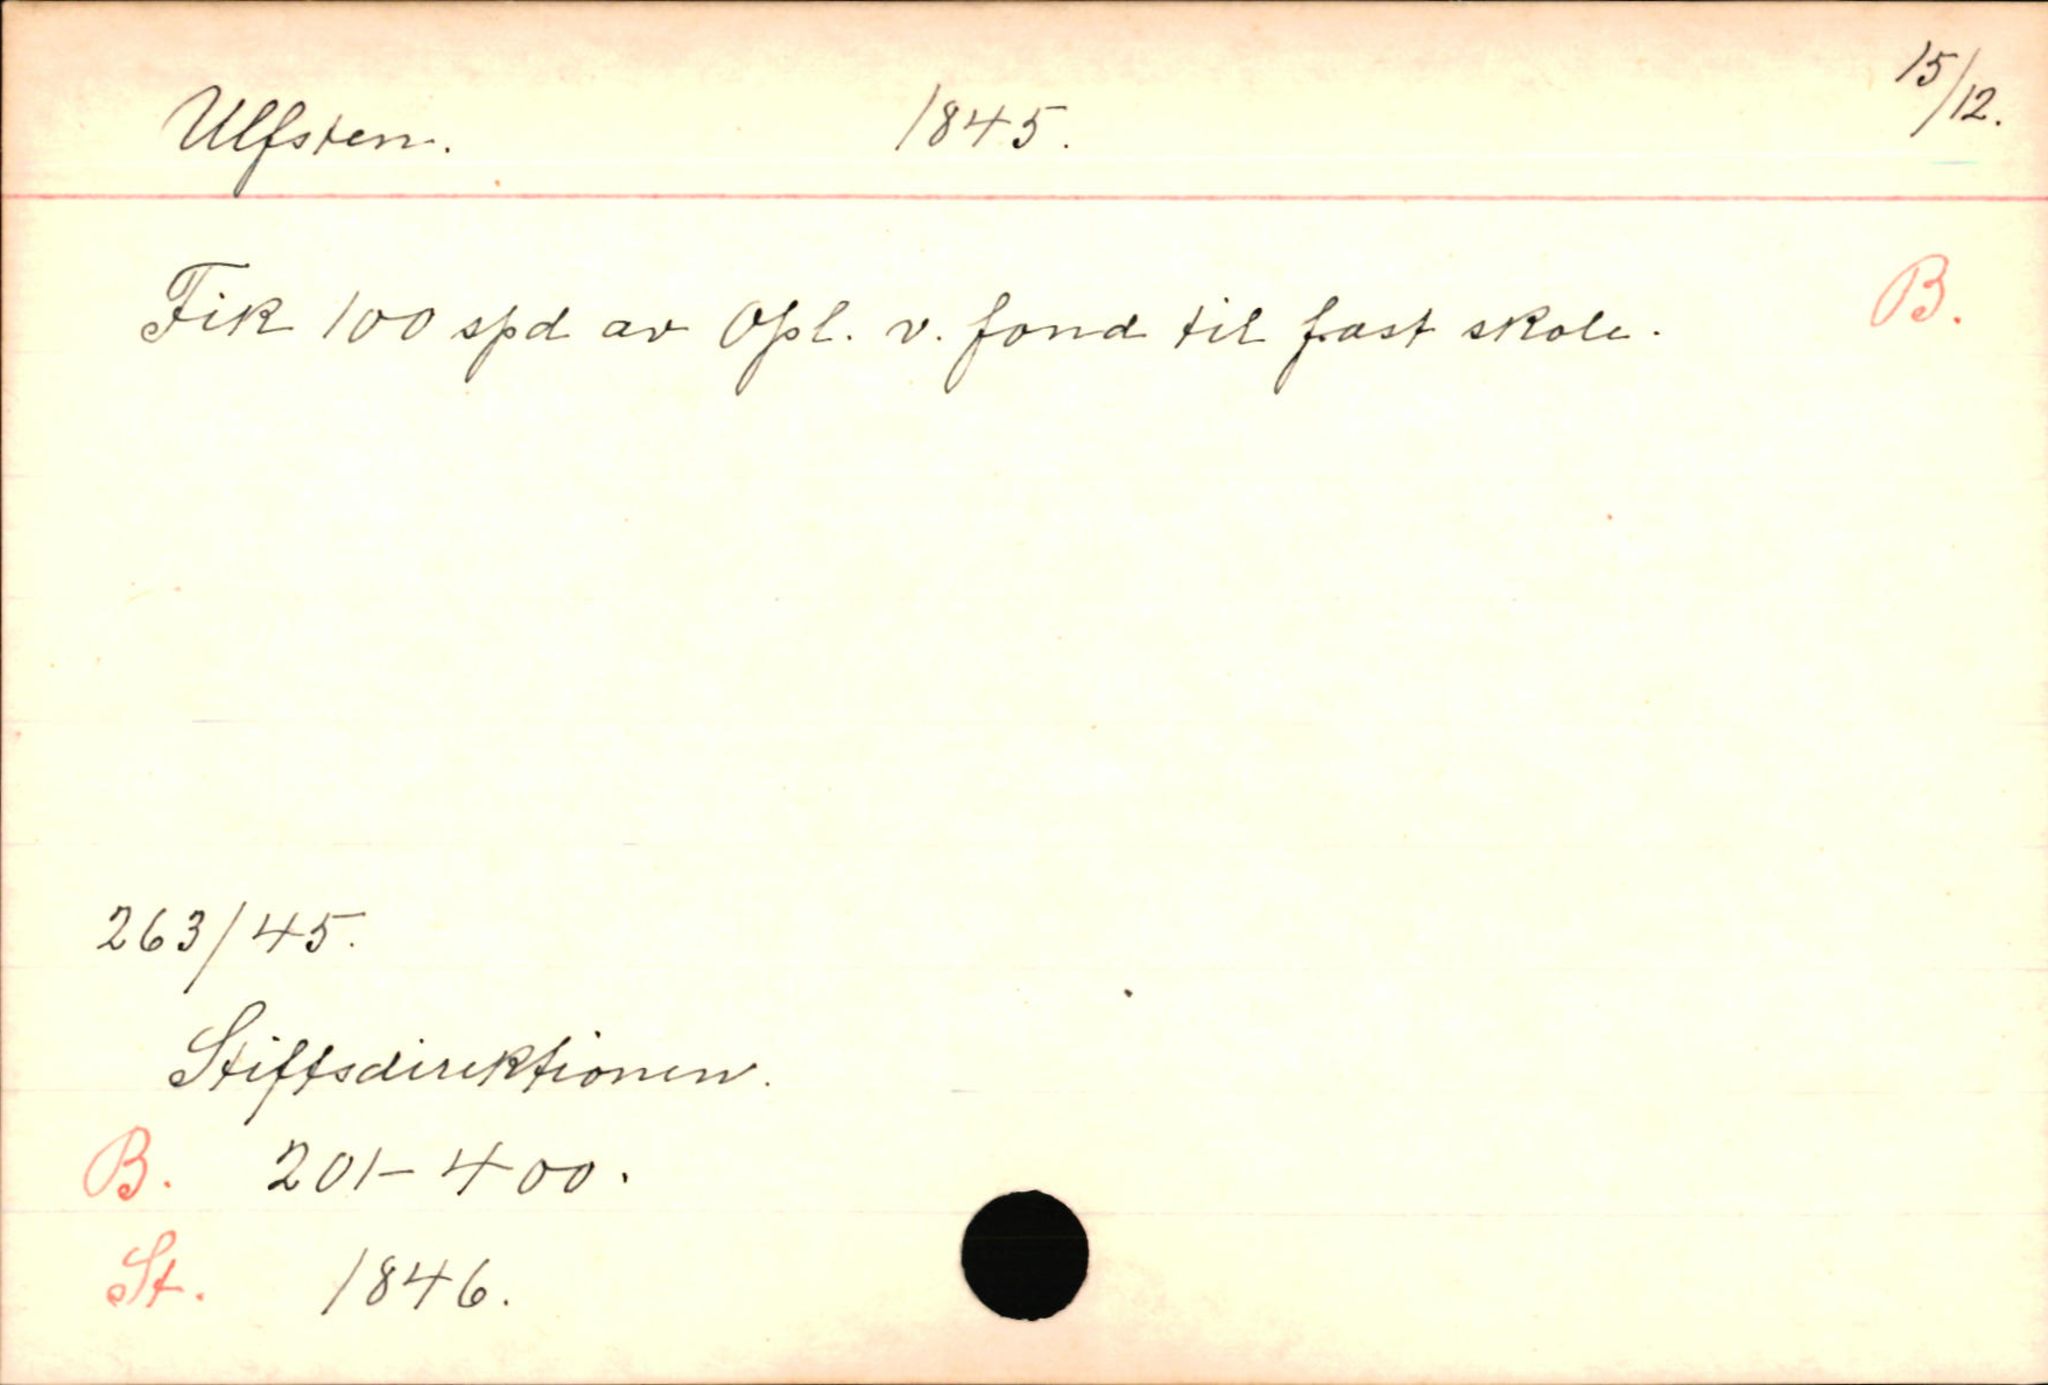 Ulfsten. 1845. 15/12.
Fik 100 spd av Opl. v. fond til fast skole. B.
263/45.
Stiftsdirektionen.
B. 201-400.
St. 1846.